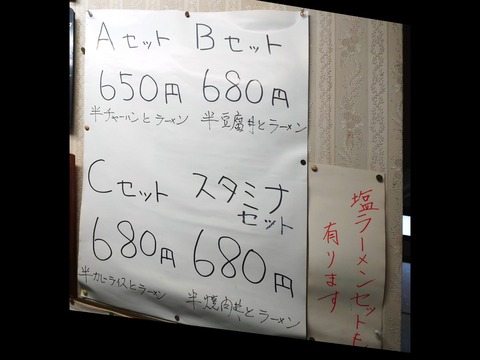 Aセット
650円
半チャーハンとラーメン
Bセット
680円
半豆腐丼とラーメン
Cセット
680円
半カレーライスとラーメン
スタミナ
セット
680円
半焼肉丼とラーメン
塩ラーメンセットも
有ります